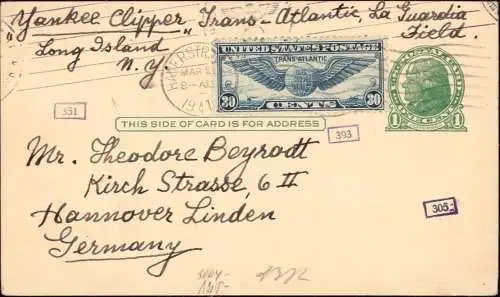 "Yankee Clipper" Trans-Atlantic, La Guardia
Field.
Long Island
N.Y.
MAR
8-AM
1941
UNITED STATES POSTAGE
TRANS-ATLANTIC
30 CENTS 30
1 ONE CENT 1
THIS SIDE OF CARD IS FOR ADDRESS
351
393
305-
Mr. Theodore Beyrodt
Kirch Strasse, 6 II
Hannover Linden
Germany